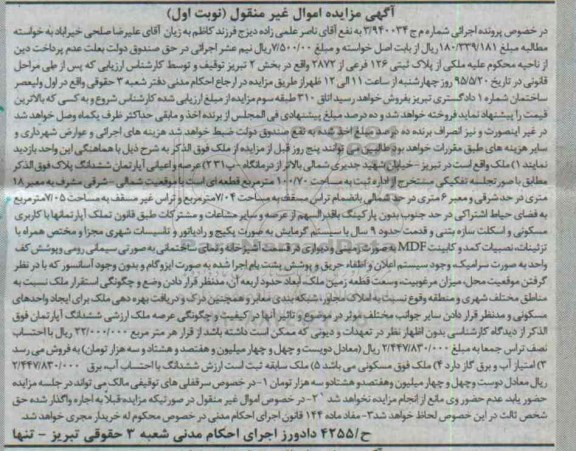 آگهی مزایده اموال غیر منقول (نوبت اول)
در خصوص پرونده اجرائی شماره م ج ۳/۹۴۰۰۳۴ به نفع آقای ناصر علمی زاده دیزج فرزند کاظم به زیان آقای علیرضا صلحی خیراباد به خواسته
مطالبه مبلغ ۱۸۰/۳۳۹/۱۸۱ ریال از بابت اصل خواسته و مبلغ ۷/۵۰۰/۰۰ ریال نیم عشر اجرائی در حق صندوق دولت بعلت عدم پرداخت دین
از ناحیه محکوم علیه ملکی از پلاک ثبتی ۱۲۶ فرعی از ۲۸۷۲ واقع در بخش ۲ تبریز توقیف و توسط کارشناس ارزیابی که پس از طی مراحل
قانونی در تاریخ ۹۵/۵/۲۰ روز چهارشنبه از ساعت ۱۱ الی ۱۲ ظهر از طریق مزایده در اجرای احکام مدنی دفتر شعبه ۳ حقوقی واقع در اول ولیعصر
ساختمان شماره ۱ دادگستری تبریز بفروش خواهد رسید اتاق ۳۱۰ طبقه سوم مزایده از مبلغ ارزیابی شده کارشناس شروع و به کسی که بالاترین
قیمت را پیشنهاد نماید فروخته خواهد شد و ده درصد مبلغ پیشنهادی فی المجلس از برنده اخذ و مابقی حداکثر ظرف یکماه وصول خواهد شد
در غیر اینصورت و نیز انصراف برنده ده درصد مبلغ اخذ شده به نفع صندوق دولت ضبط خواهد شد هزینه های اجرائی و عوارض شهرداری و
سایر هزینه های طبق مقررات خواهد بود طالبین می توانند پنج روز قبل از مزایده از ملک فوق الذکر به شرح ذیل با هماهنگی این واحد بازدید
نمایند ۱) ملک واقع است در تبریز – خیابان شهید جدیری شمالی بالاتر از درمانگاه – پ ۲۳۱) عرصه و اعیانی آپارتمان ششدانگ پلاک فوق الذکر
مطابق با صورتجلسه تفکیکی مستخرج از اداره ثبت به مساحت ۱۰۰/۷۰ مترمربع قطعه ای است با موقعیت شمالی – شرقی مشرف به معبر ۱۸
متری در حد شرقی و معبر ۶ متری در حد شمالی بانضمام تراس مسقف به مساحت ۷۰۴ مترمربع و تراس غیر مسقف به مساحت ۷۰۵ مترمربع
به فضای حیاط اشتراکی در حد جنوب بدون پارکینگ باقدرالسهم از عرصه و سایر مشاعات و مشترکات طبق قانون تملک آپارتمانها با کاربری
مسکونی و اسکلت سازه بتنی و قدمت حدود ۹ سال با سیستم گرمایش به صورت پکیج و رادیاتور و تاسیسات شهری مجزا و مختص همراه با
تزئینات، نصبیات کمد و کابینت MDF به صورت زمینی و دیواری در قسمت آشپزخانه و نمای ساختمانی به صورتی سیمانی رومی و پوشش کف
واحد به صورت سرامیک، وجود سیستم اعلان و اطفاء حریق و پوشش پشت بام اجرا شده به صورت ایزوگام و بدون وجود آسانسور که با در نظر
گرفتن موقعیت محل، میزان مرغوبیت، وسعت قطعه زمین ملک، ابعاد حدود اربعه آن، مدنظر قرار دادن وضع و چگونگی استقرار ملک نسبت به
مناطق مختلف شهری و منطقه وقوع نسبت به املاک مجاور، شبکه بندی معابر و همچنین درک و دریافت بهره دهی ملک برای ایجاد واحدهای
مسکونی و مدنظر قرار دادن سایر جوانب مختلف موثر در موضوع و تاثیر آنها در کیفیت و چگونگی عرصه ملک ارزشی ششدانگ آپارتمان فوق
الذکر از دیدگاه کارشناسی بدون اظهار نظر در تعهدات و دیونی که ممکن است داشته باشد از قرار هر متر مربع ۲۲/۰۰۰/۰۰۰ ریال با احتساب
نصف تراس جمعا به مبلغ ۲/۴۴۷/۸۳۰/۰۰۰ ریال (معادل دویست و چهل و چهار میلیون و هفتصد و هشتاد و سه هزار تومان) به فروش می رسد
۳) امتیاز آب و برق گاز دارد ۴) ملک فوق مسکونی می باشد ۵) ملک سابقه ثبت است ارزش ششدانگ با احتساب آب، برق ۲/۴۴۷/۸۳۰/۰۰۰
ریال معادل دوست وچهل و چهار میلیون وهفتصد وهشتادو سه هزار تومان ۱- در خصوص سرقفلی های توقیفی مالک می تواند در جلسه مزایده
حضور یابد عدم حضور وی مانع از انجام مزایده نخواهد شد ۲- در خصوص اموال غیر منقول در صورتیکه مزایده قبلا به اجاره واگذار شده حق
شخص ثالث در این خصوص لحاظ خواهد شد ۳- مفاد ماده ۱۴۴ قانون اجرای احکام مدنی در خصوص محکوم له خریدار مجری خواهد شد.
ح/۴۲۵۵ دادورز اجرای احکام مدنی شعبه ۳ حقوقی تبریز – تنها